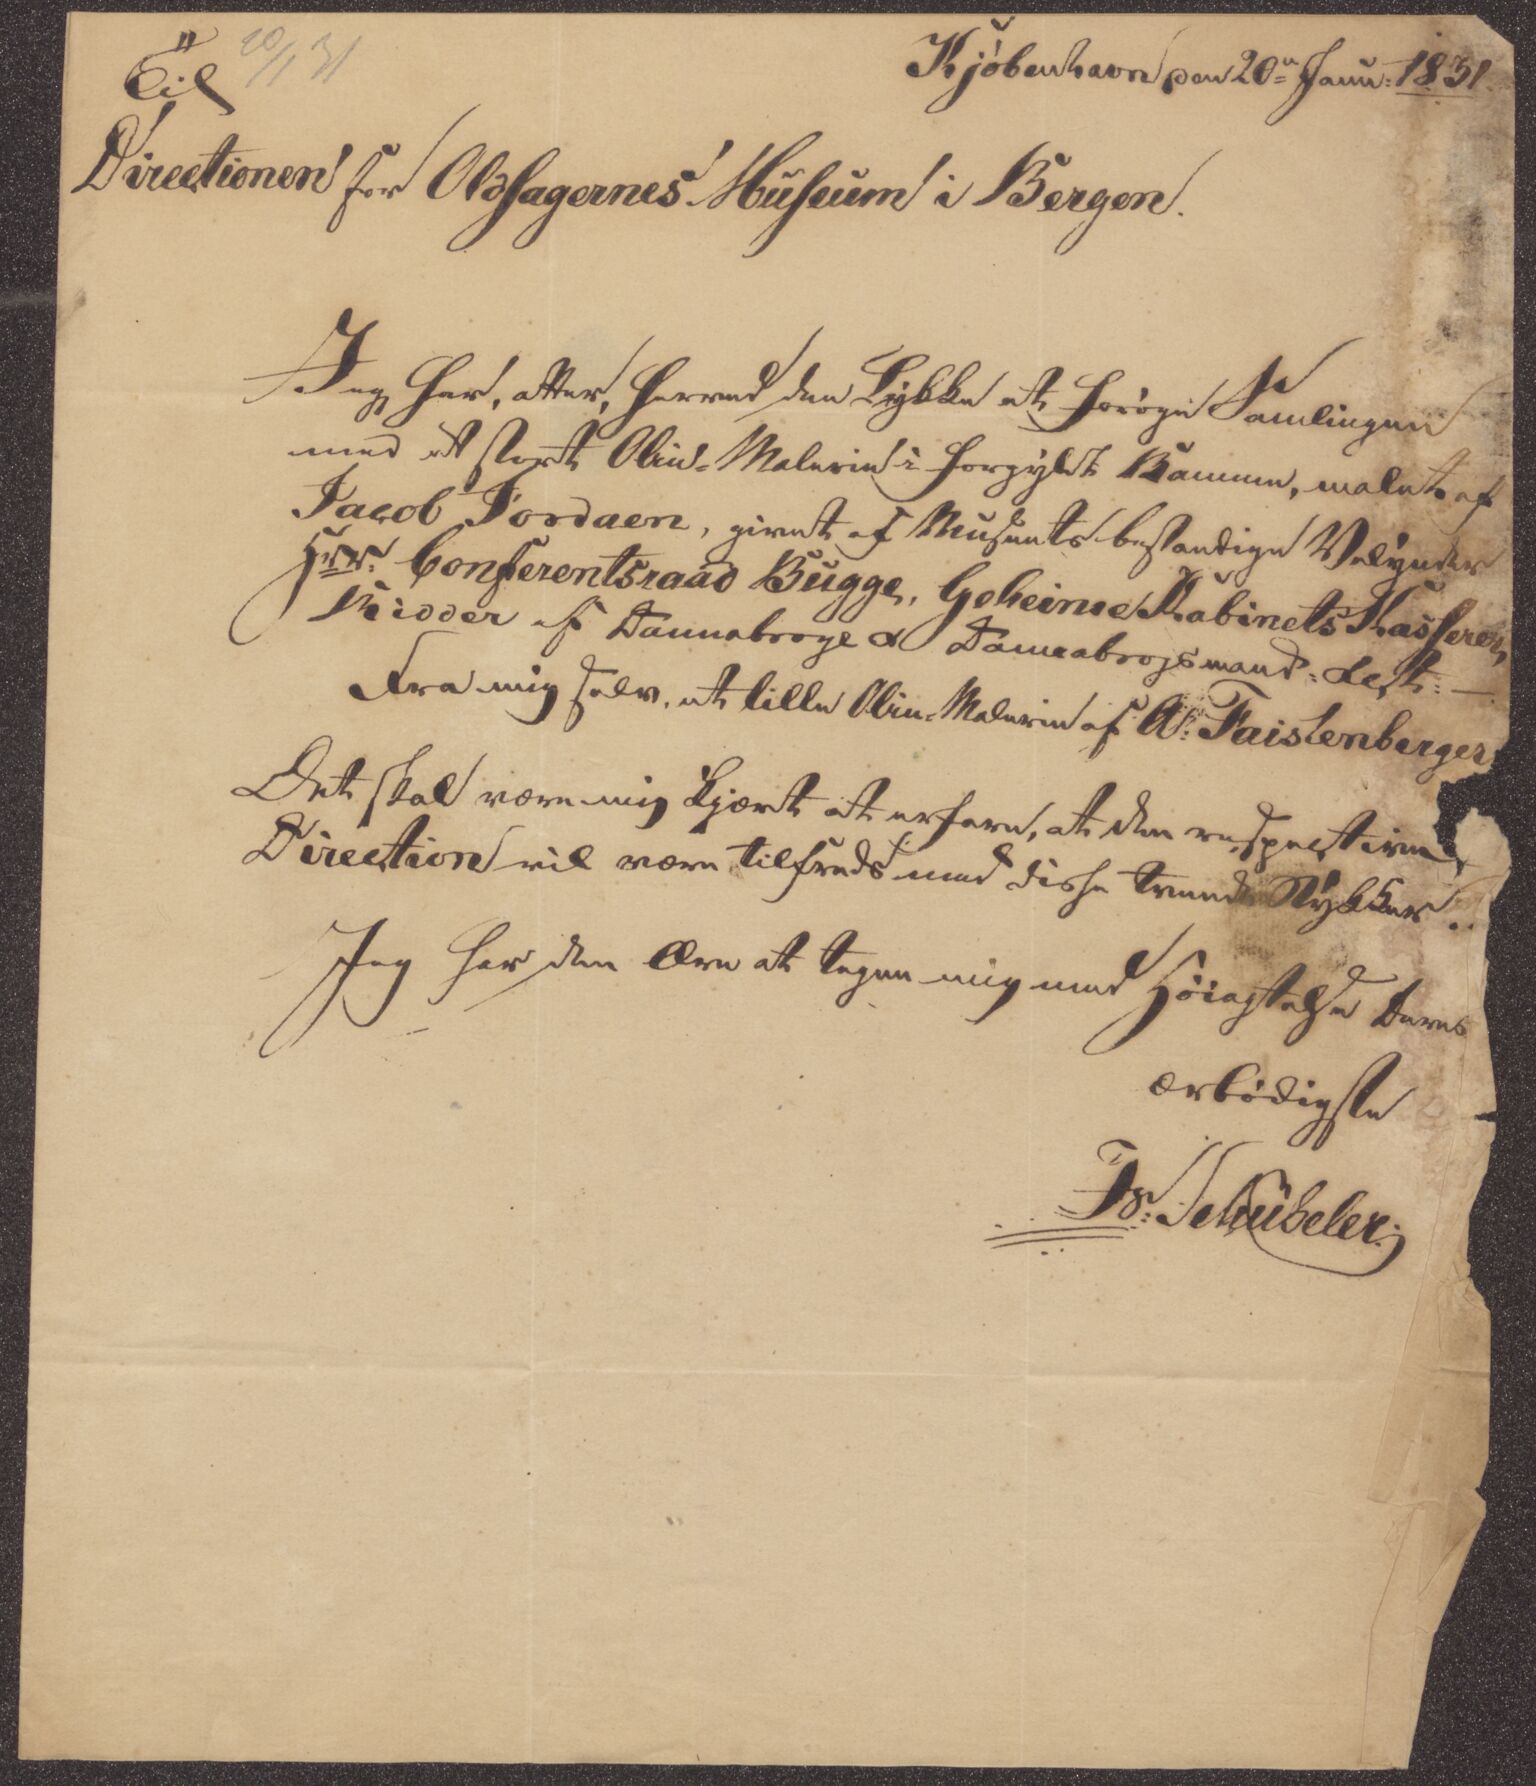 Til
20/1 31
Kjöbenhavn den 20de Janu: 1831.
Directionen for Oldsagernes Museum i Bergen.
Jeg har, atter, herved den Lykke at forøge Samlingen
med et stort Olie-Malerie i forgyldt Ramme, malet af
Jacob Jordaen, givet af Museets bestandige Velynder
Hrr. Conferentsraad Bugge, Geheime Kabinets Kasserer,
Ridder af Dannebroge & Dannebrogsmand.
Fra mig selv, et lille Olie-Malerie af A: Faistenberger
Det skal være mig kjært at erfare, at den respective
Direction vil være tilfreds med disse tvende Stykker.
Jeg har den Ære at tegne mig med Høiagtelse Deres
ærbødigste
Fr: Schübeler.